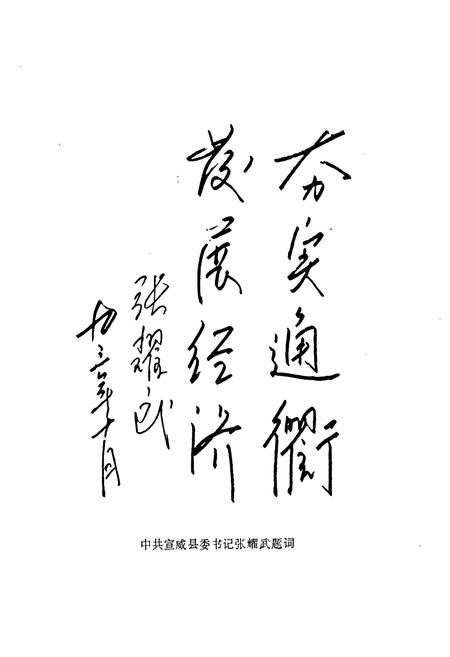 夯实通衢
发展经济
张耀武
年十月
中共宣威县委书记张耀武题词